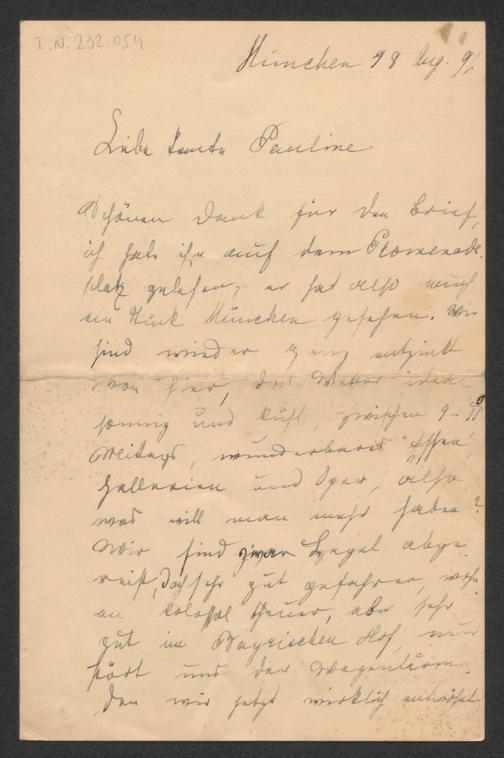 I.N. 232.054
München 98 Aug. 9
Liebe Tante Pauline
Schönen Dank für den Brief,
ich habe ihn auf dem Promenade
platz gelesen, er hat also auch
ein Stück München gesehen. Wir
sind wieder ganz entzückt
von hier, das Wetter ideal
sonnig und kühl, zwischen 9-11°
Mittags, wunderbares Essen,
Gallerien und Oper, also
was will man mehr haben?
Wir sind zwar abge
reist, doch sehr gut gefahren,
colossal theuer, aber sehr
gut im Bayrischen Hof, nur
stört uns der Wagenlärm.
den wir jetzt wirklich